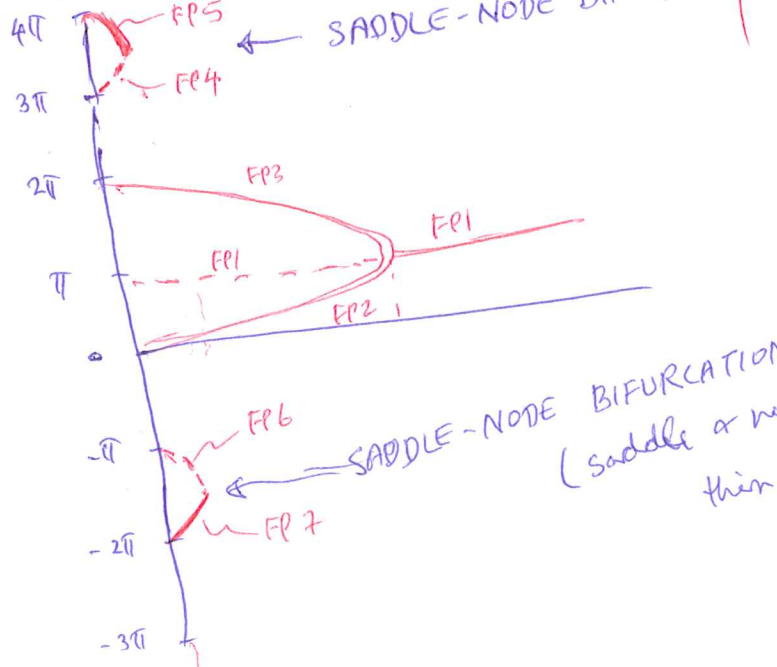 4π
FP5
SADDLE-NODE
FP4
3π
2π
FP3
FP1
π
FP1
FP2
0
SADDLE-NODE BIFURCATION
(saddle &
-π
FP6
FP7
-2π
-3π